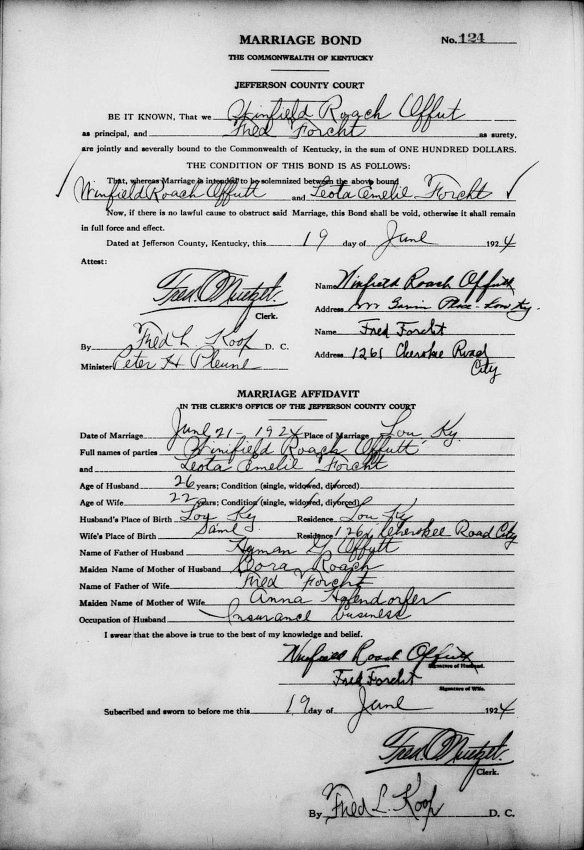 MARRIAGE BOND No. 124
THE COMMONWEALTH OF KENTUCKY
JEFFERSON COUNTY COURT
BE IT KNOWN, That we Winfield Roach Offutt
as principal, and Fred Forcht as surety,
are jointly and severally bound to the Commonwealth of Kentucky, in the sum of ONE HUNDRED DOLLARS.
THE CONDITION OF THIS BOND IS AS FOLLOWS:
That, whereas Marriage is intended to be solemnized between the above bound
Winfield Roach Offutt and Leota Amelie Forcht
Now, if there is no lawful cause to obstruct said Marriage, this Bond shall be void, otherwise it shall remain
in full force and effect.
Dated at Jefferson County, Kentucky, this 19 day of June 1924
Attest:
Fred. O. Nuetzel. Clerk.
Name Winfield Roach Offutt
Address Place - Lou Ky.
By Fred L. Koop D. C.
Name Fred Forcht
Address 1261 Cherokee Road
City
Minister Peter H Pleune
MARRIAGE AFFIDAVIT
IN THE CLERK'S OFFICE OF THE JEFFERSON COUNTY COURT
Date of Marriage June 21 - 1924 Place of Marriage Lou. Ky.
Full names of parties Winfield Roach Offutt
and Leota Amelie Forcht
Age of Husband 26 years; Condition (single, widowed, divorced)
Age of Wife 22 years; Condition (single, widowed, divorced)
Husband's Place of Birth Lou Ky Residence Lou Ky
Wife's Place of Birth Same Residence 1261 Cherokee Road City
Name of Father of Husband Hyman G Offutt
Maiden Name of Mother of Husband Dora Roach
Name of Father of Wife Fred Forcht
Maiden Name of Mother of Wife Anna Hafendorfer
Occupation of Husband Insurance business
I swear that the above is true to the best of my knowledge and belief.
Winfield Roach Offutt
Signature of Husband.
Fred Forcht
Signature of Wife.
Subscribed and sworn to before me this 19 day of June 1924
Fred. O. Nuetzel.
Clerk.
By Fred L. Koop D. C.